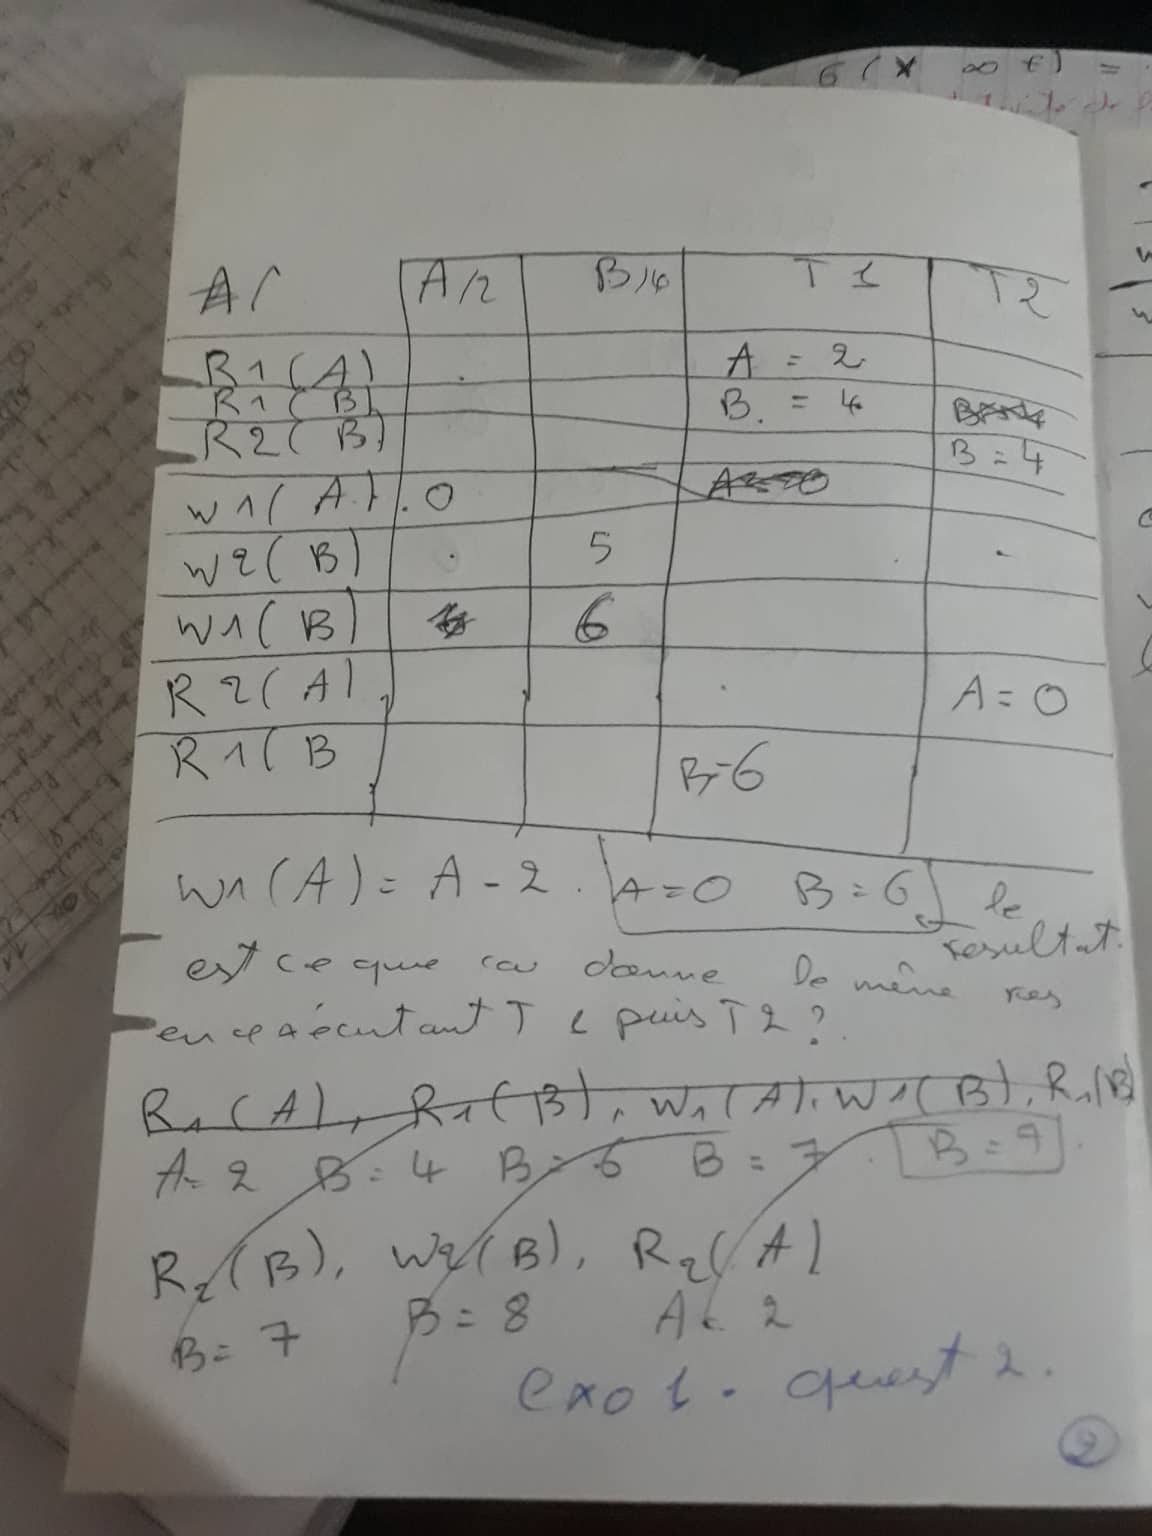 6 ( * ∞ t) =
A( A/2 B/4 T 1 T2
R1(A) A = 2
R1(B) B. = 4
R2(B) B = 4
W1(A) 0
W2(B) 5
W1(B) 6
R2(A) A = 0
R1(B B=6
W1(A) = A - 2. A=0 B=6 le
resultat.
est ce que ca donne le même res
en exécutant T1 puis T2?
R1(A), R1(B), W1(A), W1(B), R1(B)
A=2 B=4 B=6 B=7. B=7.
R2(B), W2(B), R2(A)
B=7 B=8 A=2
exo 1. quest 2.
2